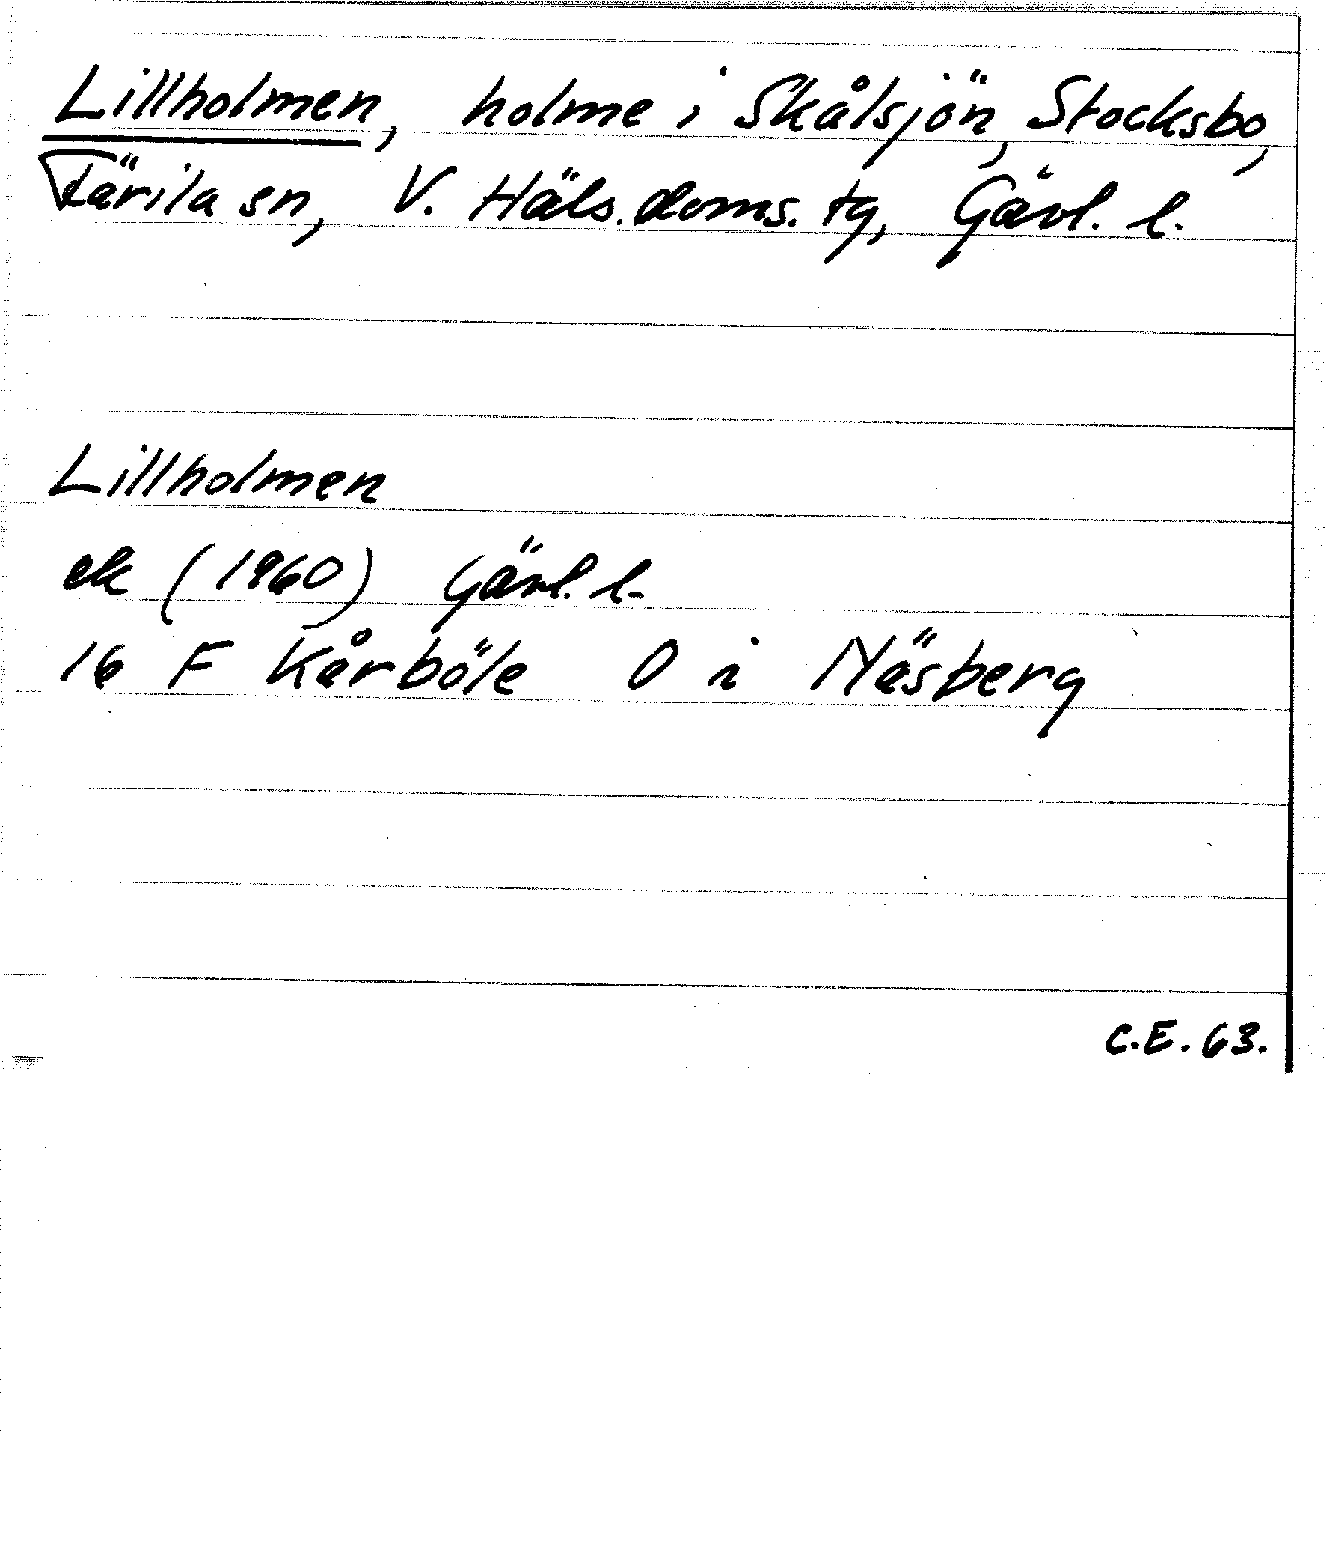 Lillholmen, holme i Skålsjön, Stocksbo,
Färila sn, V. Häls. doms. tg, Gävl. l.
Lillholmen
ek (1960) Gävl. l.
16 F Kårböle O i Näsberg
C.E. 63.